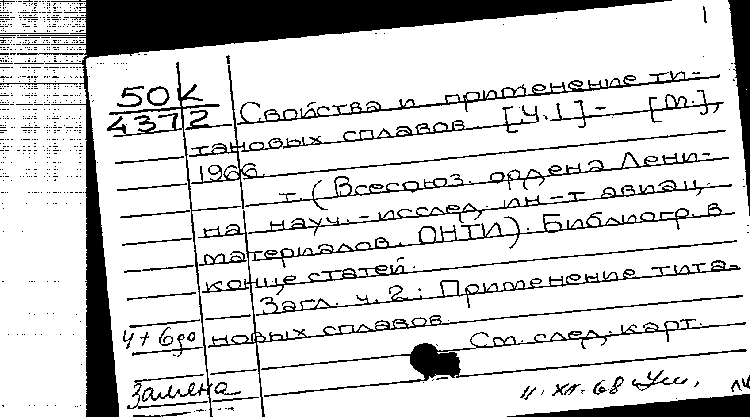 1
50К
4372
Свойства и применение ти-
тановых сплавов [Ч.1]- [М.],
1966.
т. (Всесоюз. ордена Лени-
на науч.-исслед. ин-т авиац.
материалов. ОНТИ). Библиогр. в
конце статей.
Загл. ч. 2: Применение тита-
новых сплавов.
См. след. карт.
Замена
11.XII.68